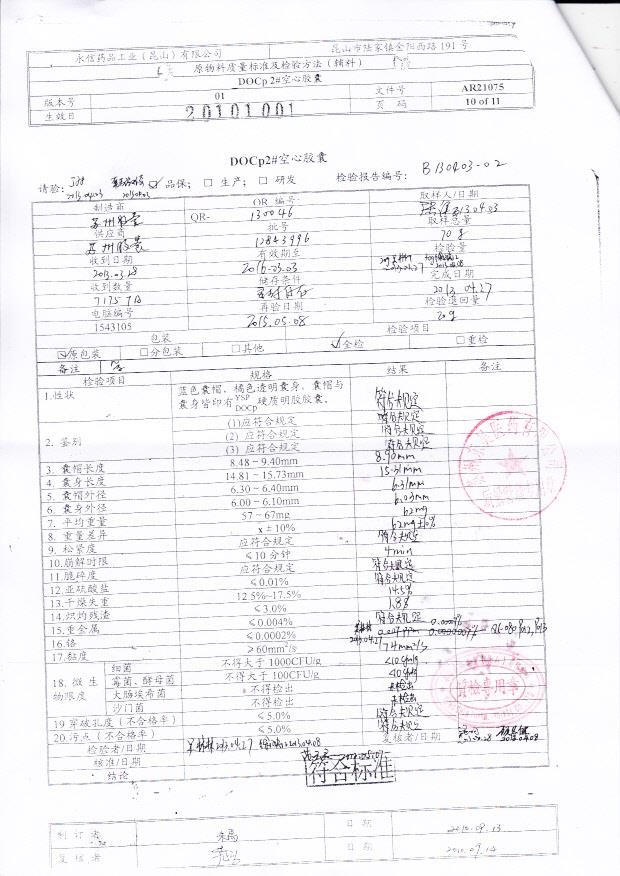 永信药品工业（昆山）有限公司 昆山市陆家镇金阳西路 191 号
原物料质量标准及检验方法（辅料）
DOCp 2#空心胶囊
版本号 01 文件号 AR21075
生效日 20101001 页 码 10 of 11
DOCp2#空心胶囊
请验: ☑ 品保; □ 生产; □ 研发 检验报告编号: B130403-02
制造商 QR 编号 取样人/日期
苏州胶囊 QR- 130046 2013.04.03
供应商 批号 取样总量
苏州胶囊 12843996 70g
收到日期 有效期至 检验量
2013.03.28 2016.03.03
收到数量 储存条件 完成日期
密封保存 2013.04.27
电脑编号 再验日期 检验退回量
1543105 2015.05.08 20g
包装 检验项目
☑原包装 □分包装 □其他 ☑全检 □重检
备注
检验项目 规格 结果 备注
1.性状 蓝色囊帽、橘色透明囊身、囊帽与
囊身皆印有 YSP DOCp 硬质明胶胶囊。 符合规定
2. 鉴别 (1)应符合规定 符合规定
(2) 应符合规定 符合规定
(3) 应符合规定 符合规定
3. 囊帽长度 8.48～9.40mm 8.90mm
4. 囊身长度 14.81～15.73mm 15.31mm
5. 囊帽外径 6.30～6.40mm 6.31mm
6. 囊身外径 6.00～6.10mm 6.03mm
7. 平均重量 57～67mg 62mg
8. 重量差异 x±10% 62mg±10%
9. 松紧度 应符合规定 符合规定
10.崩解时限 ≤10 分钟 4min
11.脆碎度 应符合规定 符合规定
12.亚硫酸盐 ≤0.01% 符合规定
13.干燥失重 12.5%~17.5% 14.5%
14.炽灼残渣 ≤3.0% 1.8%
15.重金属 ≤0.004% 符合规定
16.铬 ≤0.0002%
17.黏度 ≥60mm²/s 74mm²/s
18. 微生物限度 细菌 不得大于 1000CFU/g <10cfu/g
霉菌、酵母菌 不得大于 100CFU/g <10cfu/g
大肠埃希菌 不得检出 未检出
沙门菌 不得检出 未检出
19 穿破孔度（不合格率） ≤5.0% 符合规定
20.污点（不合格率） ≤5.0% 符合规定
检验者/日期 2013.04.27 2013.04.08 复核者/日期
核准/日期
结论 符合标准
质检专用章
制 订 者 朱禹 日 期 2010.09.13
复 核 者 日 期 2010.09.14